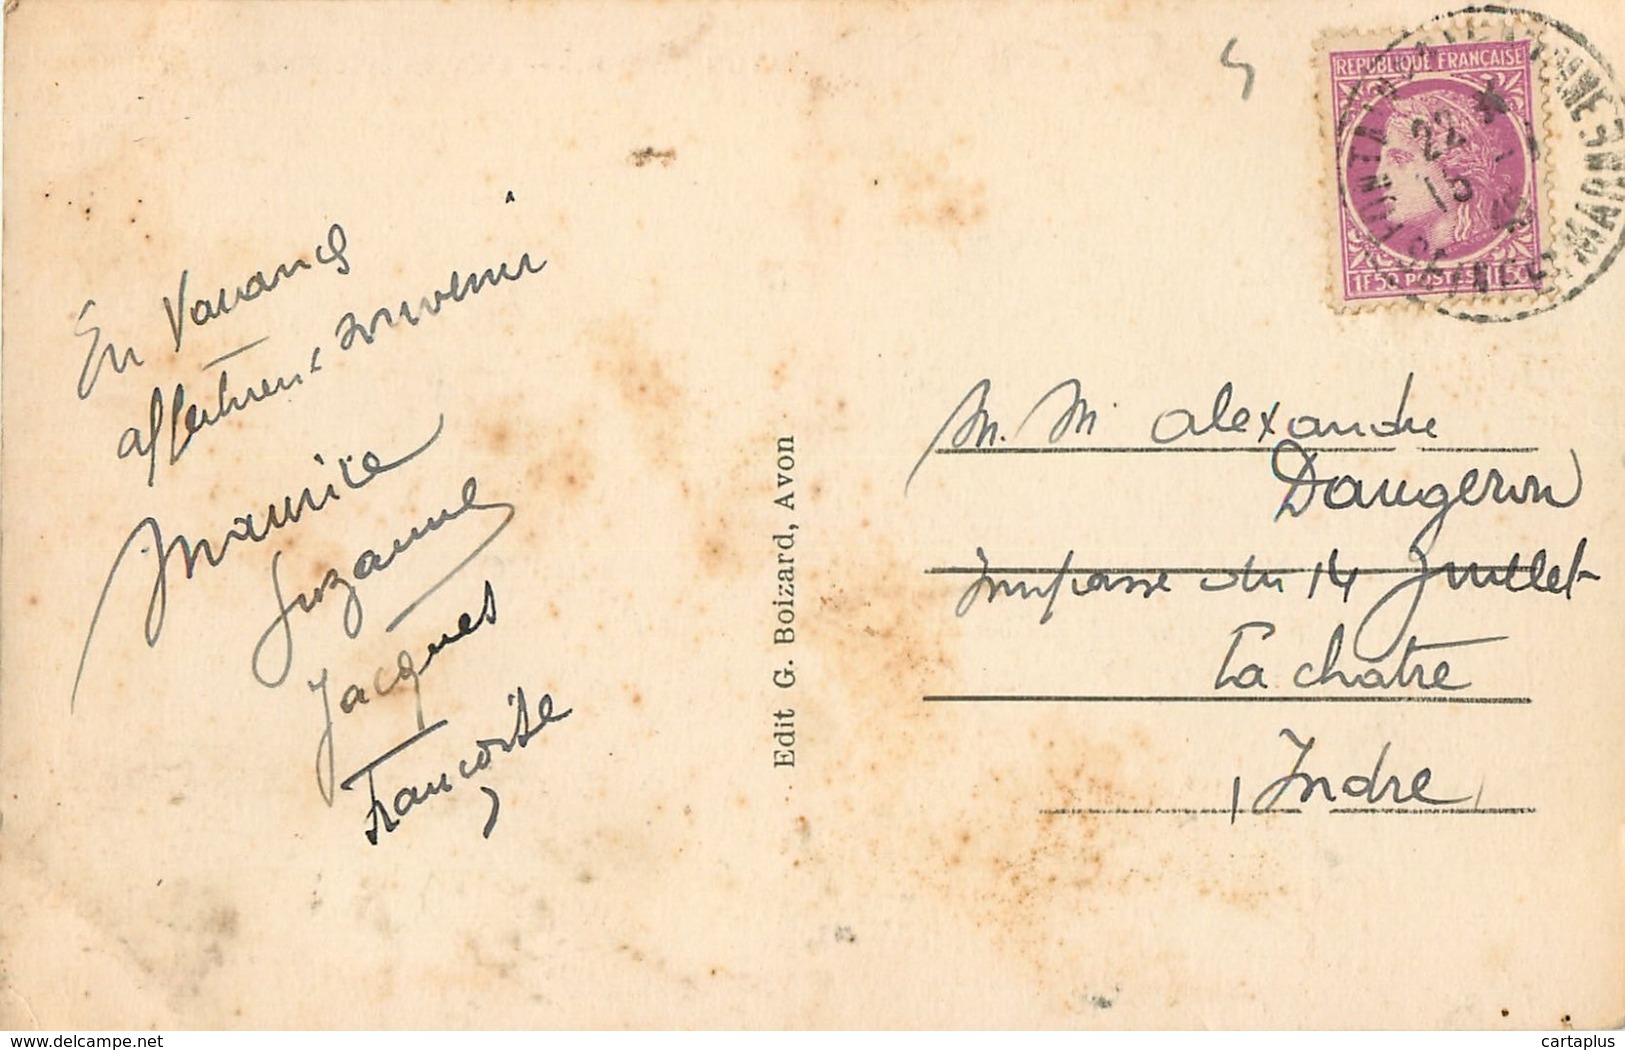 En Vacances
affectueux souvenir
Maurice
Suzanne
Jacques
Françoise
Edit G. Boizzard, Avon
REPUBLIQUE FRANCAISE
1F50 POSTES 1F50
22
15
SEINE-&-MARNE
M. M alexandre
Daugeron
Impasse du 14 Juillet
La chatre
Indre
www.delcampe.net
cartaplus